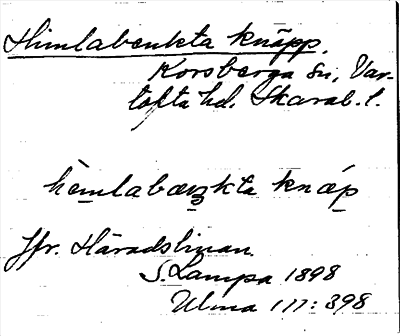 Himlabenkta knäpp.
Korsberga sn, Var-
tofta hd. Skarab. l.
hèmlabæŋkta knæ̀p
Jfr. Häradslinan
S. Lampa 1898
Ulma 111: 398